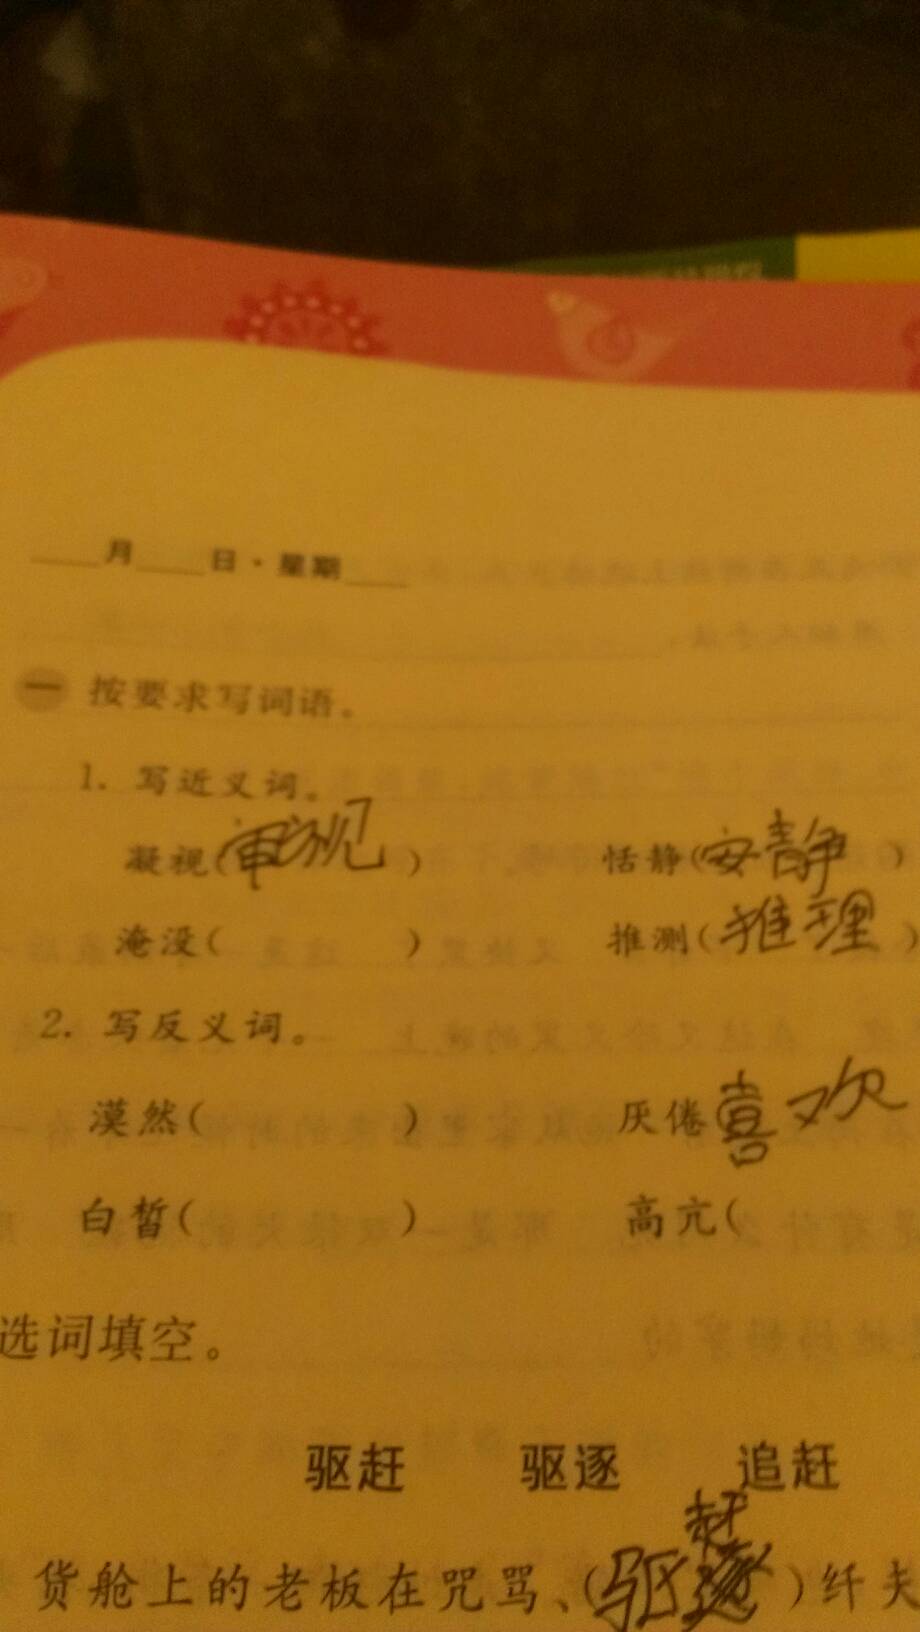 ____月____日·星期____
一 按要求写词语。
1. 写近义词。
凝视(审视) 恬静(安静)
淹没( ) 推测(推理)
2. 写反义词。
漠然( ) 厌倦喜欢
白皙( ) 高亢(
选词填空。
驱赶 驱逐 追赶
货舱上的老板在咒骂、(驱赶)纤夫